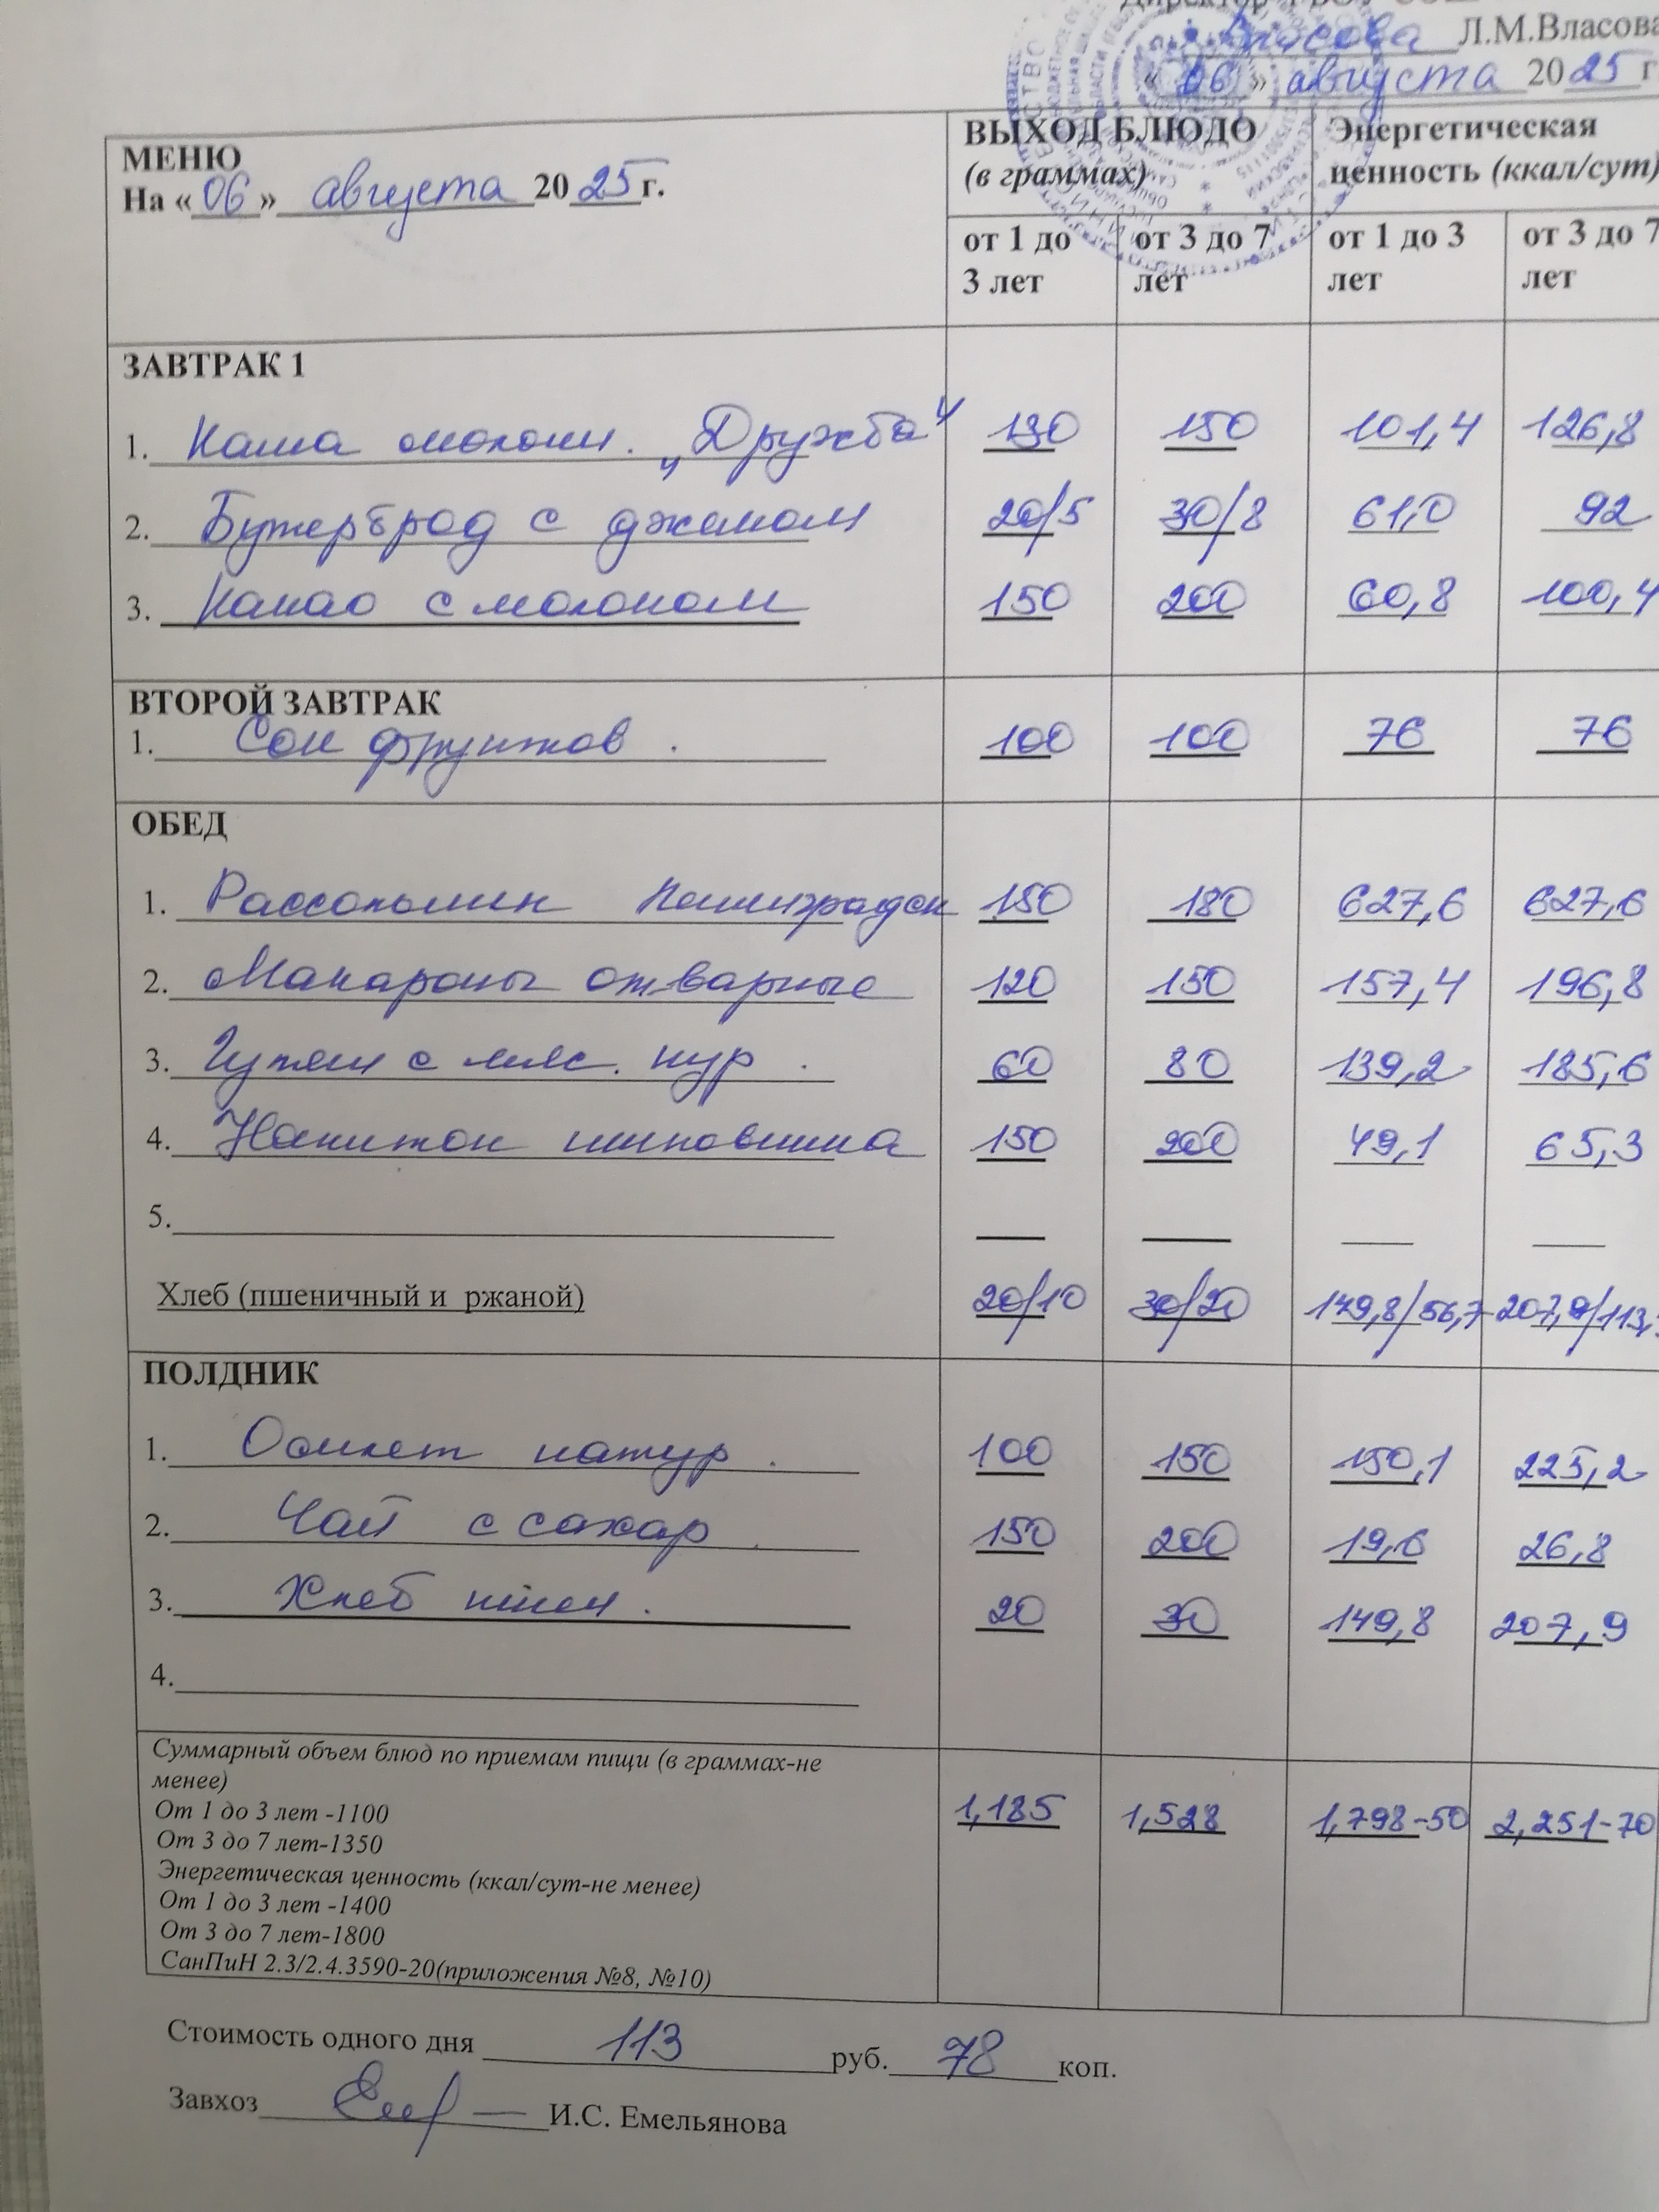 Л.М.Власова
« 06 » августа 2025 г
МЕНЮ
На «06» августа 2025г.
ВЫХОД БЛЮДО
(в граммах)
Энергетическая
ценность (ккал/сут)
от 1 до
3 лет
от 3 до 7
лет
от 1 до 3
лет
от 3 до 7
лет
ЗАВТРАК 1
1. Каша молочн. „Дружба" 130 150 101,4 126,8
2. Бутерброд с джемом 20/5 30/8 61,0 92
3. Какао с молоком 150 200 60,8 100,4
ВТОРОЙ ЗАВТРАК
1. Сок фруктов. 100 100 76 76
ОБЕД
1. Рассольник Ленинградск 150 180 627,6 627,6
2. Макароны отварные 120 150 157,4 196,8
3. Гуляш с мяс. кур. 60 80 139,2 185,6
4. Напиток шиповника 150 200 49,1 65,3
5.
Хлеб (пшеничный и ржаной) 20/10 30/20 149,8/56,7 207,9/113,
ПОЛДНИК
1. Омлет натур. 100 150 150,1 225,2
2. Чай с сахар. 150 200 19,6 26,8
3. Хлеб пшен. 20 30 149,8 207,9
4.
Суммарный объем блюд по приемам пищи (в граммах-не
менее)
От 1 до 3 лет -1100
От 3 до 7 лет-1350
Энергетическая ценность (ккал/сут-не менее)
От 1 до 3 лет -1400
От 3 до 7 лет-1800
СанПиН 2.3/2.4.3590-20(приложения №8, №10)
1,185 1,528 1,798-50 2,251-70
Стоимость одного дня 113 руб. 78 коп.
Завхоз И.С. Емельянова